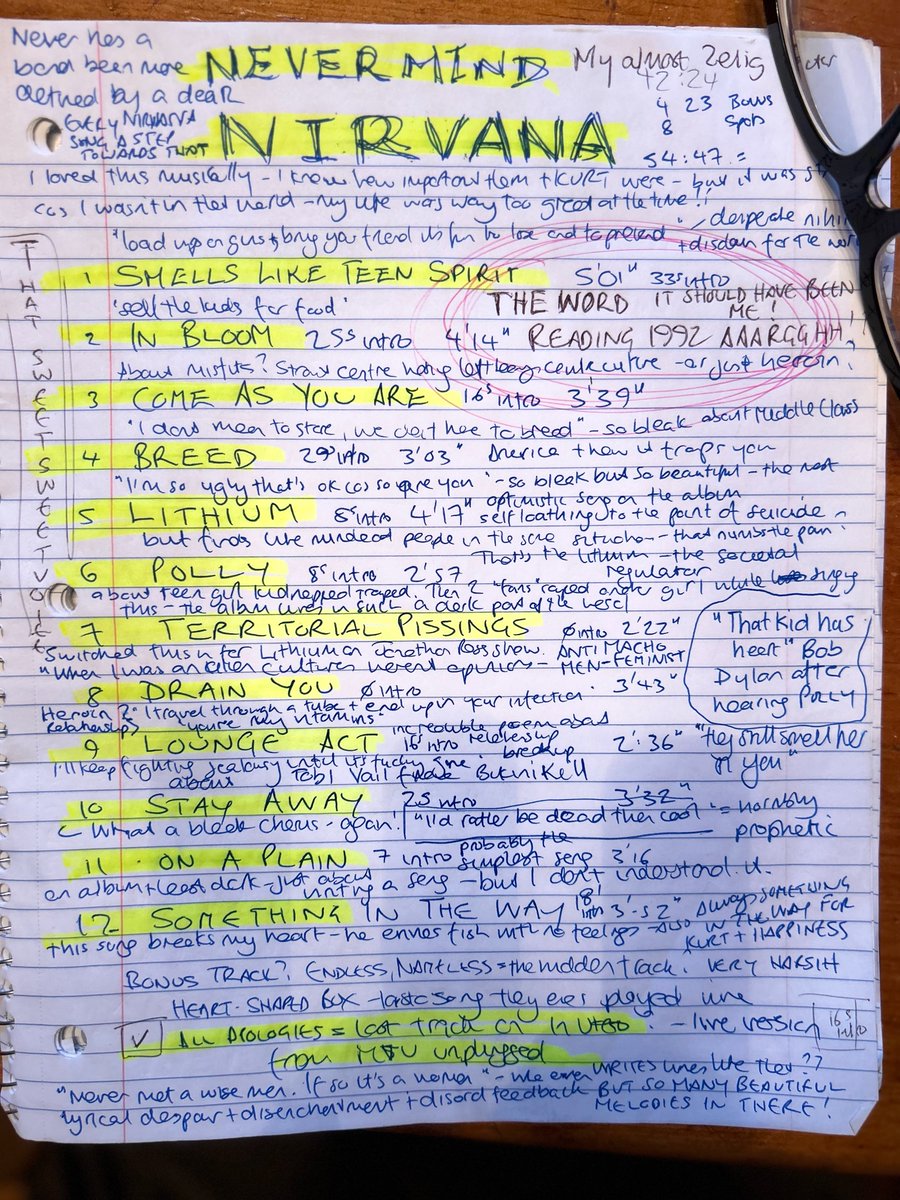 Never has a
band been more
defined by a death
EVERY NIRVANA
SONG A STEP
TOWARDS THAT
NEVERMIND
My almost Zelig
42:24
4 23 Bonus
8 Spots
54:47 =
NIRVANA
I loved this musically - I know how important them + KURT were - but it was
cos I wasn't in that world - my life was way too good at the time!!
"load up on guns + bring your friends it's fun to lose and to pretend" - desperate
+ disdain for the
THAT SWEET SWEET VOICE
1 SMELLS LIKE TEEN SPIRIT 5'01" 33s intro
'sell the kids for food'
THE WORD IT SHOULD HAVE BEEN
ME!
2 IN BLOOM 25s intro 4'14" READING 1992 AAARGGHH!!
About misfits? Straw centre hating counterculture - or just heroin?
3 COME AS YOU ARE 16s intro 3'39"
"I don't mean to stare, we don't have to breed" - so bleak about Middle Class
4 BREED 29s intro 3'03" America + how it traps you
"I'm so ugly that's ok cos so are you" - so bleak but so beautiful - the most
optimistic song on the album
5 LITHIUM 8s intro 4'17" self loathing to the point of suicide -
but finds like minded people in the same situation - that numbs the pain.
That's the lithium - the societal
regulator
6 POLLY 8s intro 2'57
about teen girl kidnapped + raped. Then 2 "fans" raped another girl while singing
this - the album lives in such a dark part of the
7 TERRITORIAL PISSINGS 0 intro 2'22"
Switched this in for Lithium on Jonathan Ross show. ANTI MACHO
"When I was an alien cultures weren't opinions - MEN-FEMINIST
"That kid has
heart" Bob
Dylan after
hearing POLLY
8 DRAIN YOU 0 intro 3'43"
Heroin? "I travel through a tube + end up in your infection.
Relationship? you're my vitamins"
incredible poem about
9 LOUNGE ACT 16 intro relationship 2':36" "They still smell her
breakup on you"
I'll keep fighting jealousy until it's fucking gone.
about Tobi Vail from Bikini Kill
10 STAY AWAY 25 intro 3'32"
What a bleak chorus - again. "I'd rather be dead than cool" = horribly
prophetic
probably the
11 . ON A PLAIN 7 intro simplest song 3'16
on album + least dark - just about
writing a song - but I don't understand it.
12 SOMETHING IN THE WAY 18' intro 3'-52" ALWAYS SOMETHING
IN THE WAY FOR
this song breaks my heart - he envies fish with no feelings - also KURT + HAPPINESS
BONUS TRACK? ENDLESS, NAMELESS = the hidden track. VERY HARSH
HEART-SHAPED BOX - last song they ever played live
✓ ALL APOLOGIES = last track on In Utero. - live version 16s intro
from MTV unplugged
"Never met a wise man. If so it's a woman" - who even WRITES lines like that??
lyrical despair + disenchantment + discord feedback BUT SO MANY BEAUTIFUL
MELODIES IN THERE!